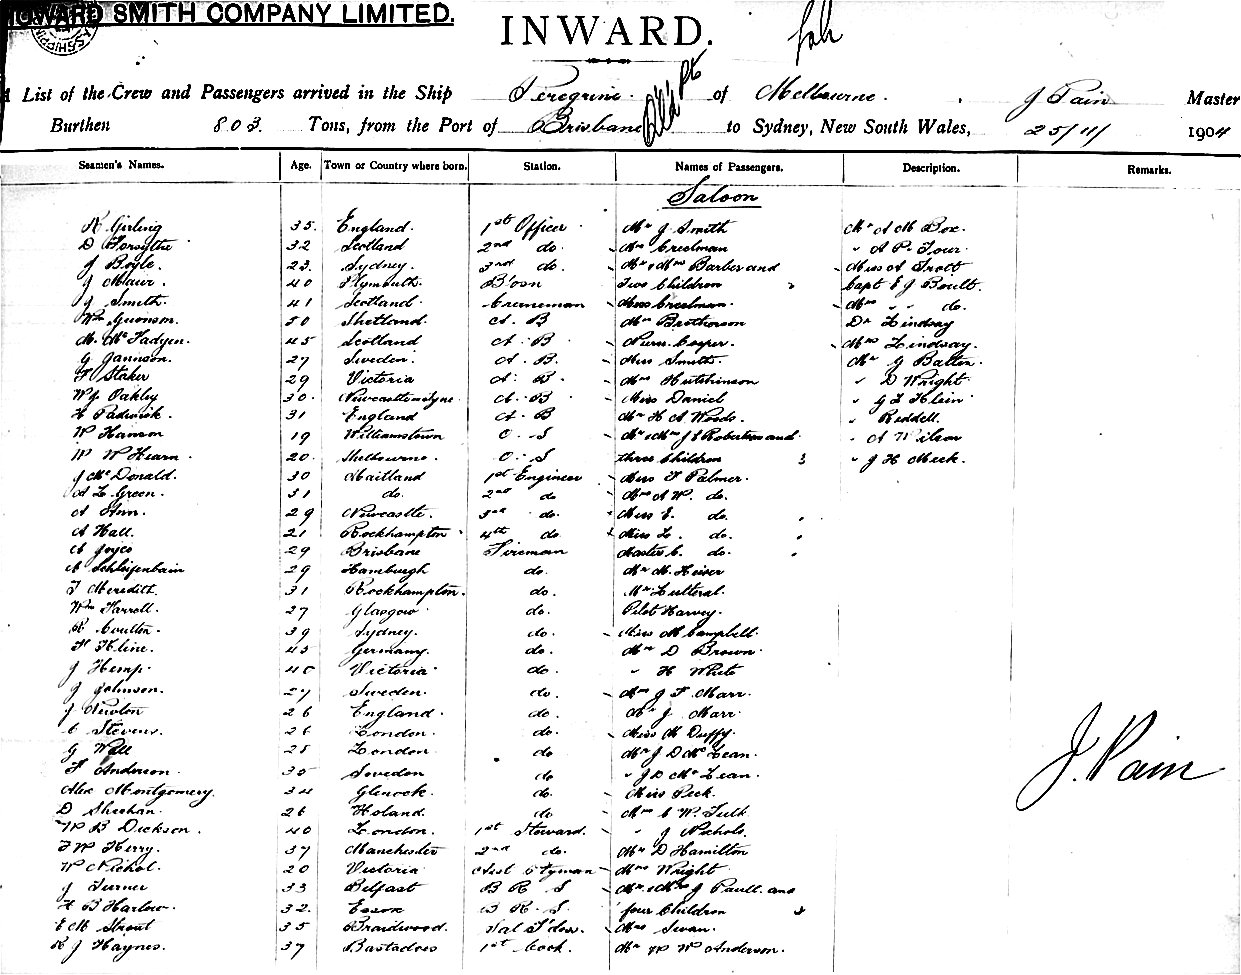 HOWARD SMITH COMPANY LIMITED.
INWARD.
A List of the Crew and Passengers arrived in the Ship Peregrine of Melbourne. J Pain Master
Burthen 803 Tons, from the Port of Brisbane to Sydney, New South Wales, 25/11/ 1904
Seamen's Names. Age. Town or Country where born. Station. Names of Passengers. Description. Remarks.
Saloon
R Girling 35 England. 1st Officer Mr J Smith Mr A M Box.
D Forsythe 32 Scotland 2nd do. Mr Creelman " A P.
J Boyle. 23. Sydney. 3rd do. Mr & Mrs Barber and Miss A Trott
J 40 Plymouth. Two Children 2 Capt E J Boult.
J Smith. 41 Scotland. Miss Creelman. Mrs " " do.
Wm 50 Shetland. A. B Mrs Brotherson Dr Lindsay
M. McFadyen. 45 Scotland A. B. Nurse Cooper. Mrs Lindsay.
G 27 Sweden. A. B. Miss Smith. Mr J
F Staker 29 Victoria A. B. Mrs Hutchinson " D Wright
W J Oakley 30 A. B Miss Daniel " G F Klein
H Padwick. 31 England A. B Mr H A Woods. " Reddell.
W Hanson 19 Williamstown O. S Mr & Mrs J S Robertson and " A Wilson
W W Hearn. 20 Melbourne. O. S three Children 3 " J H Meek.
J McDonald. 30 Maitland 1st Engineer Miss F Palmer.
A L Green. 31 do. 2nd do Mrs A W. do.
A 29 Newcastle. 3rd do. Miss E. do.
A Hall. 21 Rockhampton 4th do. Miss L. do.
A Joyce 29 Brisbane Fireman Master C. do.
A Schleifenbain 29 Hamburgh do. Mr M. Heiser
T Meredith. 31 Rockhampton. do. Mr
Wm Farrell. 27 Glasgow do. Pilot Harvey.
R Coulton. 39 Sydney. do. Miss M Campbell.
F Kline. 43 Germany. do. Mr D Brown.
J Hemp. Victoria do " H White
J Johnson. 27 Sweden. do. Mrs J F Marr.
J Newton 26 England. do. Mr J Marr
C Stevens. 26 London. do. Miss M Duffy.
G Will 28 London. do Mr J D McLean.
F Anderson. 35 Sweden do " J D McLean.
Alex Montgomery. 34 Glenock. do. Miss Peck.
D Sheehan. 26 Holand. do Mrs C W. Tulk
W B Dickson. 40 London. 1st Steward. " J Nichols.
F W Kerry. 37 Manchester 2nd do. Mr D Hamilton
W Nichol. 20 Victoria Mrs Wright
J Turner 33 Belfast B R S Mr & Mrs J Paull and
H B Harlow. 32. Essex B R. S. four Children
E M 35 Braidwood. Mrs Swan.
R J Haynes. 37 Bastadoes 1st Cook. Mr W W Anderson.
J. Pain